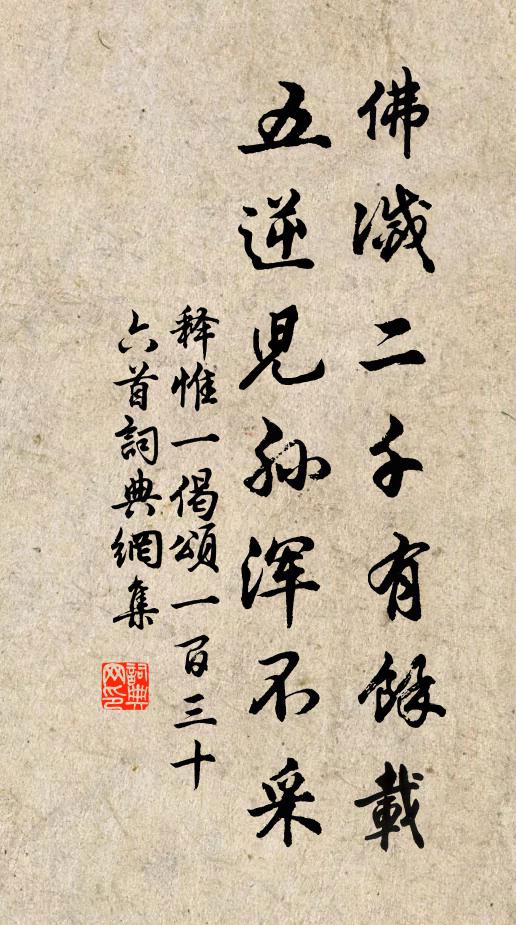 佛滅二千有餘載
五逆児孙浑不采
释惟一偈頌一百三十
六首詞典網集
詞典
网印